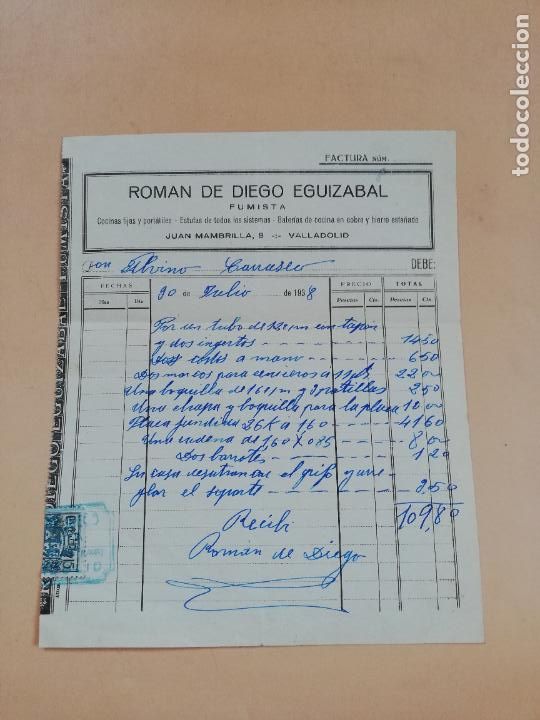 FACTURA NÚM.
ROMAN DE DIEGO EGUIZABAL
FUMISTA
Cocinas fijas y portátiles - Estufas de todos los sistemas - Baterías de cocina en cobre y hierro estañado
JUAN MAMBRILLA, 8 VALLADOLID
Don Albino Carrasco DEBE:
FECHAS PRECIO TOTAL
Mes Día Pesetas Cts. Pesetas Cts.
30 de Julio de 1938
Por un tubo de con tapon
y dos ingertos 14 50
Dos a mano 6 50
Dos marcos para cenicieros a 22 00
Una boquilla de y 2 pratillas 2 50
Una chapa y boquilla para la placa 12 00
Placa fundida 26 K a 160 41 60
Una cadena de 160 X 0'85 8 00
Dos barrotes 1 20
Su casa el grifo y arre
glar el soporte 2 50
109,80
Recibi
Román de Diego
todocoleccion.net